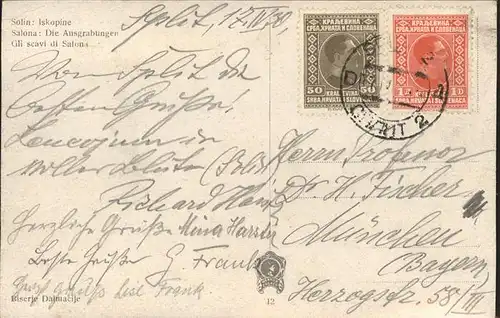 Solin: Iskopine
Salona: Die Ausgrabungen
Gli scavi di Salona
Split, 17.IV.29,
Von Split die
besten Grüße!
Leucojum in
voller Blüte!
Richard
Herzliche Grüße Mina
Beste Grüße G. Frank
Gruß Lise Frank
Biserje Dalmacije
12
КРАЉЕВИНА
СРБА, ХРВАТА И СЛОВЕНАЦА
50 50
KRALJEVINA
SRBA, HRVATA I SLOVENACA
КРАЉЕВИНА
СРБА, ХРВАТА И СЛОВЕНАЦА
1Д 1D
KRALJEVINA
SRBA, HRVATA I SLOVENACA
SPLIT 2
Herrn Professor
Dr. H. Fischer
München
(Bayern)
Herzogstr. 58/III